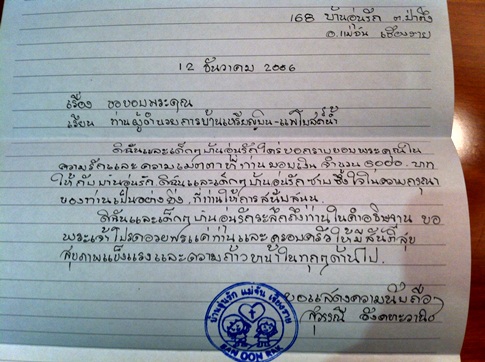 168 บ้านอุ่นรัก ต.ป่าตึง
อ.แม่จัน เชียงราย
12 ธันวาคม 2006
เรื่อง ขอขอบพระคุณ
เรียน ท่านผู้อำนวยการบ้านเหรียญเงิน-แม่ไปสู่น้ำ
ดิฉันและเด็กๆบ้านอุ่นรักใคร่ขอกราบขอบพระคุณใน
ความรักและความเมตตาที่ท่านมอบเงิน จำนวน 5000.- บาท
ให้กับบ้านอุ่นรัก ดิฉันและเด็กๆบ้านอุ่นรักซาบซึ้งใจในความกรุณา
ของท่านเป็นอย่างยิ่ง ที่ท่านให้การสนับสนุน
ดิฉันและเด็กๆบ้านอุ่นรักระลึกถึงท่านในคำอธิษฐาน ขอ
พระเจ้าโปรดอวยพรแด่ท่านและครอบครัว ให้มีสันติสุข
สุขภาพแข็งแรงและความก้าวหน้าในทุกๆด้านไป.
ขอแสดงความนับถือ
สุวรณี
บ้านอุ่นรัก แม่จัน เชียงราย
BAN OON RAK